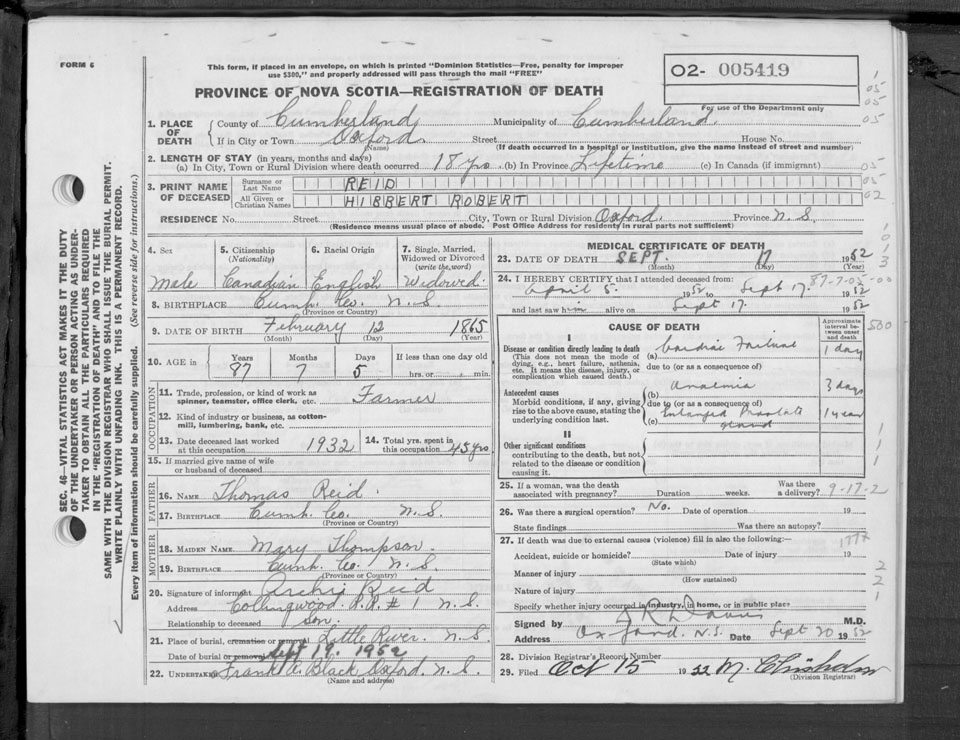 FORM 6
This form, if placed in an envelope, on which is printed "Dominion Statistics—Free, penalty for improper
use $300," and properly addressed will pass through the mail "FREE"
02- 005419
For use of the Department only
PROVINCE OF NOVA SCOTIA—REGISTRATION OF DEATH
1. PLACE OF DEATH
County of Cumberland Municipality of Cumberland
If in City or Town Oxford Street House No.
(Name) (If death occurred in a hospital or institution, give the name instead of street and number)
2. LENGTH OF STAY (in years, months and days)
(a) In City, Town or Rural Division where death occurred 18 yrs (b) In Province Lifetime (c) In Canada (if immigrant)
3. PRINT NAME OF DECEASED
Surname or Last Name REID
All Given or Christian Names HIBBERT ROBERT
RESIDENCE No. Street City, Town or Rural Division Oxford. Province N.S.
(Residence means usual place of abode. Post Office Address for residents in rural parts not sufficient)
SEC. 46—VITAL STATISTICS ACT MAKES IT THE DUTY
OF THE UNDERTAKER OR PERSON ACTING AS UNDER-
TAKER TO OBTAIN ALL THE PARTICULARS REQUIRED
IN THE "REGISTRATION OF DEATH" AND TO FILE THE
SAME WITH THE DIVISION REGISTRAR WHO SHALL ISSUE THE BURIAL PERMIT.
WRITE PLAINLY WITH UNFADING INK. THIS IS A PERMANENT RECORD.
Every item of information should be carefully supplied. (See reverse side for instructions.)
4. Sex 5. Citizenship (Nationality) 6. Racial Origin 7. Single, Married, Widowed or Divorced (write the word)
Male Canadian English Widowed
8. BIRTHPLACE Cumb. Co. N.S.
(Province or Country)
9. DATE OF BIRTH February 12 1865
(Month) (Day) (Year)
10. AGE in Years Months Days If less than one day old
87 7 5 hrs. or min.
OCCUPATION
11. Trade, profession, or kind of work as
spinner, teamster, office clerk, etc. Farmer
12. Kind of industry or business, as cotton-
mill, lumbering, bank, etc.
13. Date deceased last worked at this occupation 1932 14. Total yrs. spent in this occupation 45 yrs
15. If married give name of wife
or husband of deceased
FATHER
16. NAME Thomas Reid
17. BIRTHPLACE Cumb. Co. N.S.
(Province or Country)
MOTHER
18. MAIDEN NAME. Mary Thompson
19. BIRTHPLACE Cumb. Co. N.S.
(Province or Country)
20. Signature of informant Archie Reid
Address Collingwood. R.R. # 1 N.S.
Relationship to deceased son.
21. Place of burial, cremation or removal Little River. N.S.
Date of burial or removal Sept 19. 1952
22. UNDERTAKER Frank A. Black Oxford. N.S.
(Name and address)
MEDICAL CERTIFICATE OF DEATH
23. DATE OF DEATH SEPT. 17 1952
(Month) (Day) (Year)
24. I HEREBY CERTIFY that I attended deceased from:
April 5. 1952 to Sept 17. 1952
and last saw him alive on Sept 17. 1952
CAUSE OF DEATH
Approximate interval between onset and death
I
Disease or condition directly leading to death
(This does not mean the mode of
dying, e.g., heart failure, asthenia,
etc. It means the disease, injury, or
complication which caused death.)
(a) Cardiac Failure 1 day
due to (or as a consequence of)
Antecedent causes
Morbid conditions, if any, giving
rise to the above cause, stating the
underlying condition last.
(b) Anaemia 3 days
due to (or as a consequence of)
(c) Enlarged Prostate gland 1 year
II
Other significant conditions
contributing to the death, but not
related to the disease or condition
causing it.
25. If a woman, was the death
associated with pregnancy? Duration weeks. Was there a delivery? 9-17-2
26. Was there a surgical operation? No. Date of operation 19
State findings Was there an autopsy?
27. If death was due to external causes (violence) fill in also the following:
Accident, suicide or homicide? Date of injury 19
(State which)
Manner of injury
(How sustained)
Nature of injury
Specify whether injury occurred in industry, in home, or in public place
Signed by R Davis M.D.
Address Oxford. N.S. Date Sept 20 1952
28. Division Registrar's Record Number
29. Filed Oct 15 1952 M. Chisholm
(Division Registrar)